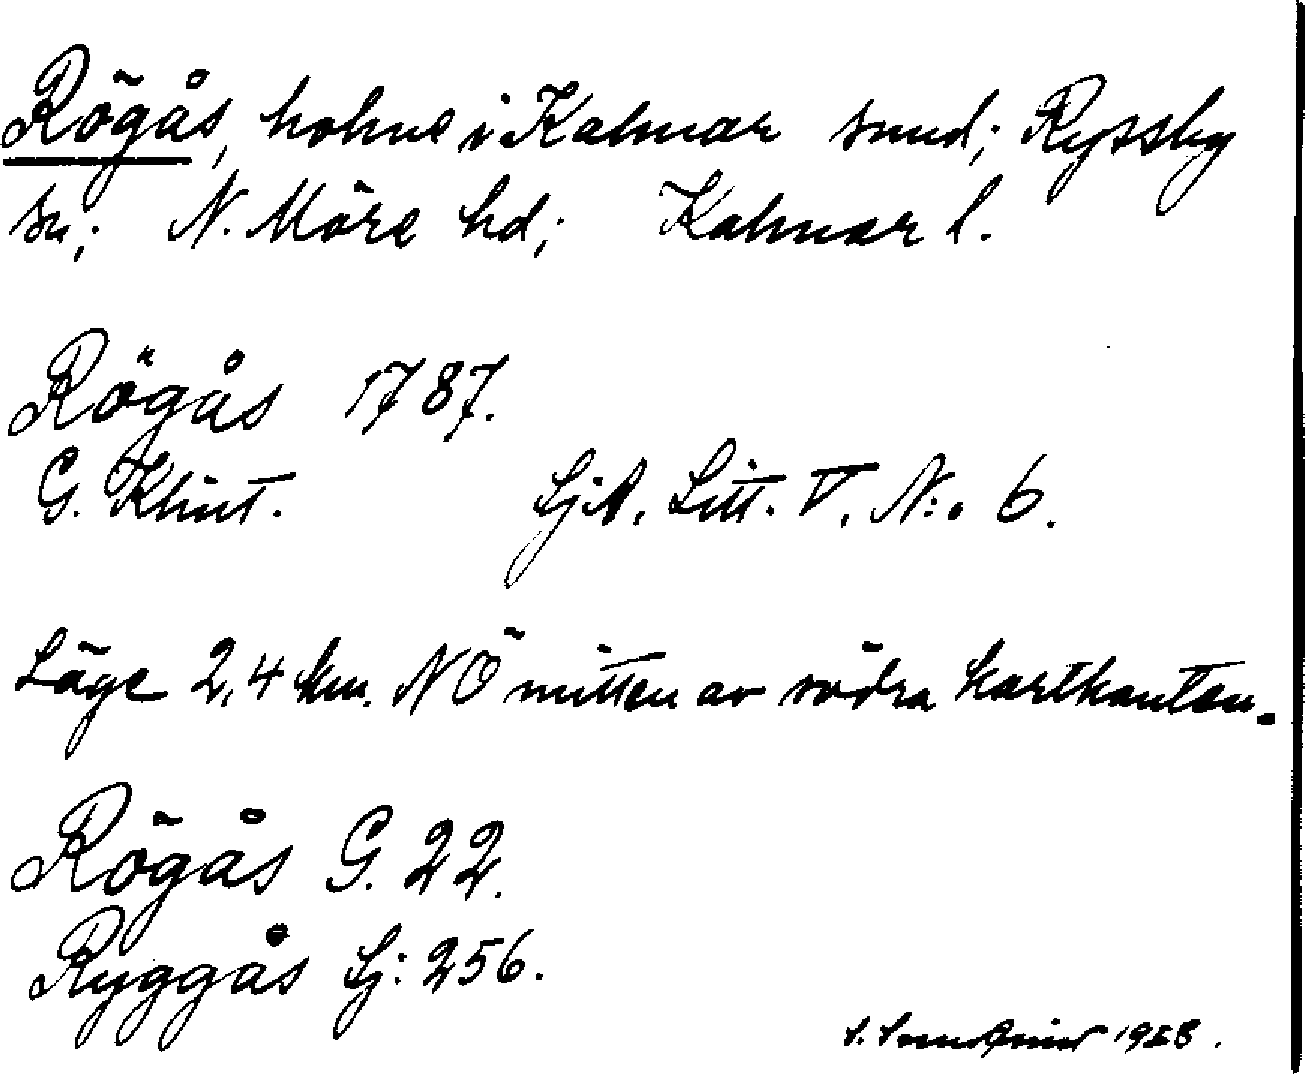 Rögås, holme i Kalmar sund; Ryssby
sn; N. Möre hd; Kalmar l.
Rögås 1787.
G. Klint. SjA. Litt. V. N:o 6.
Läge 2,4 km. NÖ mitten av södra kartkanten.
Rögås G. 22.
Ryggås Sj: 256.
S.